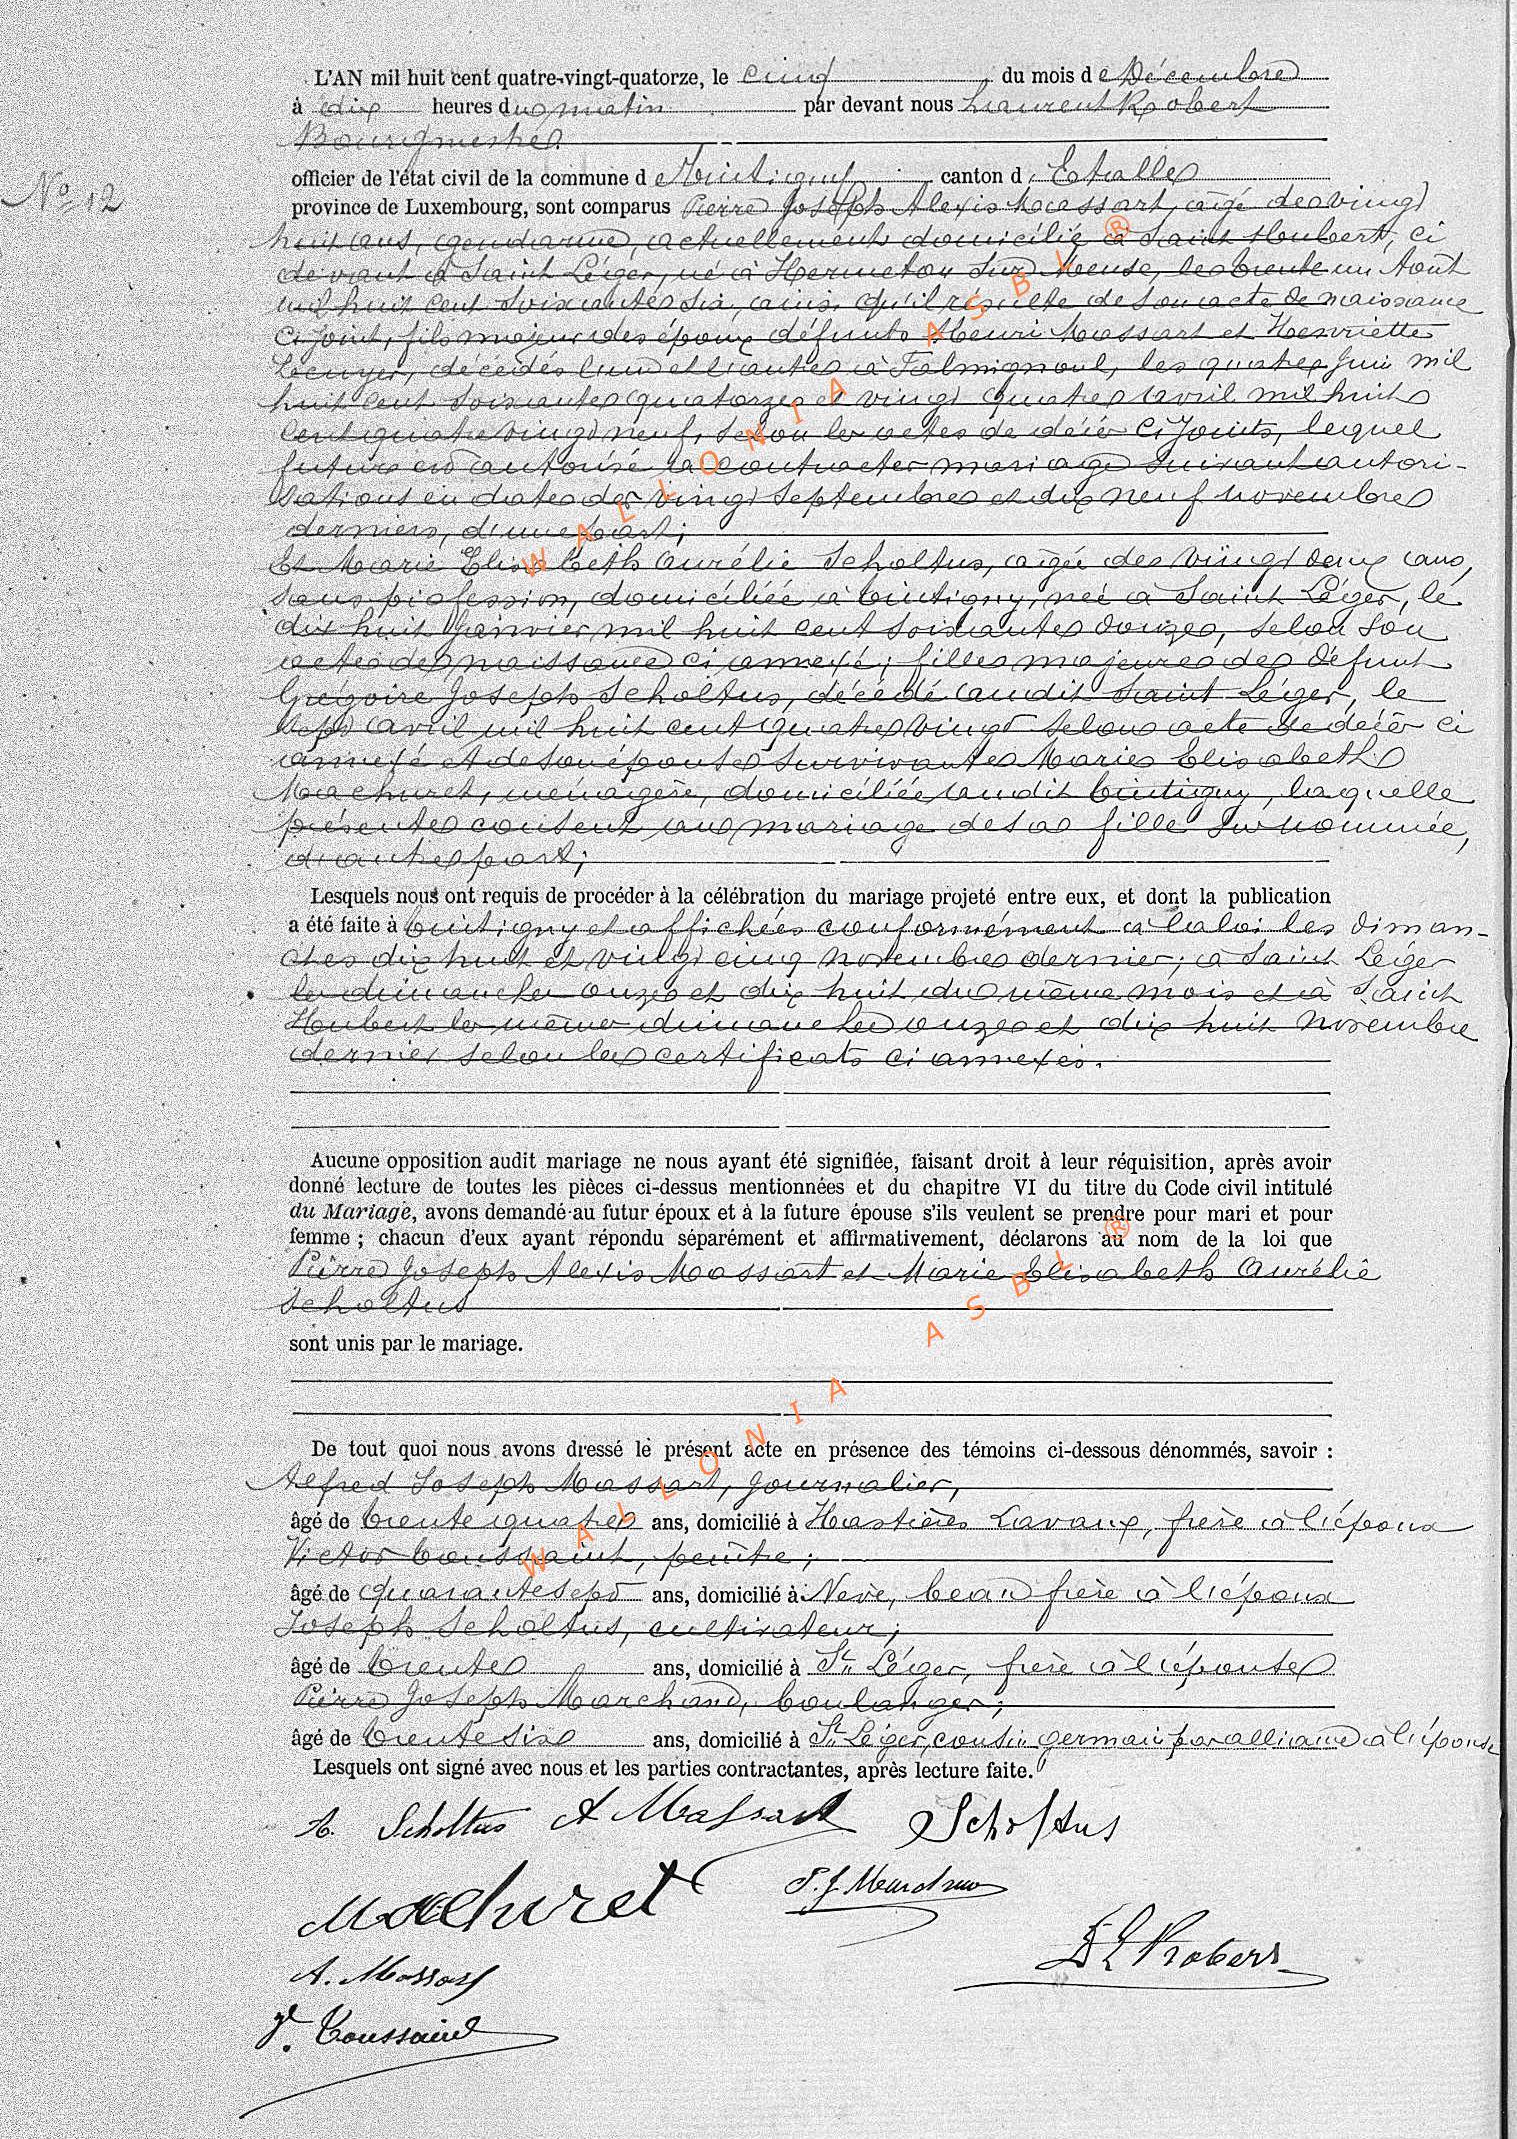 L'AN mil huit cent quatre-vingt-quatorze, le cinq du mois de Décembre
à dix heures du matin par devant nous Laurent Robert
Bourgmestre
officier de l'état civil de la commune d Tintigny canton d' Etalle
N° 12
province de Luxembourg, sont comparus Pierre Joseph Alexis Massart, âgé de vingt
huit ans, gendarme, actuellement domicilié à Saint Hubert, ci
devant à Saint Léger, né à Hermeton sur Meuse, le trente un Août
mil huit cent soixante six, ainsi qu'il résulte de son acte de naissance
ci joint, fils majeur des époux défunts Henri Massart et Henriette
Lecuyer, décédés l'un et l'autre à Falmignoul, les quatre Juin mil
huit cent soixante quatorze et vingt quatre avril mil huit
cent quatre vingt neuf, selon les actes de décès ci joints, lequel
futur est autorisé à contracter mariage suivant autori-
sations en date des vingt septembre et dix neuf novembre
derniers, d'une part;
Et Marie Elisabeth Aurélie Scholtus, âgée de vingt deux ans,
sans profession, domiciliée à Tintigny, née à Saint Léger, le
dix huit Janvier mil huit cent soixante douze, selon son
acte de naissance ci annexé; fille majeure de défunt
Grégoire Joseph Scholtus, décédé audit Saint Léger, le
sept avril mil huit cent quatre vingt selon acte de décès ci
annexé et de son épouse survivante Marie Elisabeth
Machuret, ménagère, domiciliée audit Tintigny, laquelle
présente consent au mariage de sa fille surnommée,
d'autre part;
Lesquels nous ont requis de procéder à la célébration du mariage projeté entre eux, et dont la publication
a été faite à Tintigny et affichées conformément à la loi les diman-
ches dix huit et vingt cinq novembre dernier; à Saint Léger
les dimanches onze et dix huit du même mois et à Saint
Hubert les mêmes dimanches onze et dix huit novembre
dernier selon les certificats ci annexés.
Aucune opposition audit mariage ne nous ayant été signifiée, faisant droit à leur réquisition, après avoir
donné lecture de toutes les pièces ci-dessus mentionnées et du chapitre VI du titre du Code civil intitulé
du Mariage, avons demandé au futur époux et à la future épouse s'ils veulent se prendre pour mari et pour
femme ; chacun d'eux ayant répondu séparément et affirmativement, déclarons au nom de la loi que
Pierre Joseph Alexis Massart et Marie Elisabeth Aurélie
Scholtus
sont unis par le mariage.
De tout quoi nous avons dressé le présent acte en présence des témoins ci-dessous dénommés, savoir :
Alfred Joseph Massart, journalier,
âgé de trente quatre ans, domicilié à Hastières Lavaux, frère à l'époux
Victor Toussaint, peintre;
âgé de quarante sept ans, domicilié à Nevè, beau frère à l'époux
Joseph Scholtus, cultivateur;
âgé de trente ans, domicilié à St Léger, frère à l'épouse
Pierre Joseph Marchand, boulanger;
âgé de trente six ans, domicilié à St Léger, cousin germain par alliance à l'épouse
Lesquels ont signé avec nous et les parties contractantes, après lecture faite.
A. Scholtus A Massart Scholtus
Machuret
A. Massart
Vr. Toussaint
WALLONIA ASBL ®
WALLONIA ASBL ®